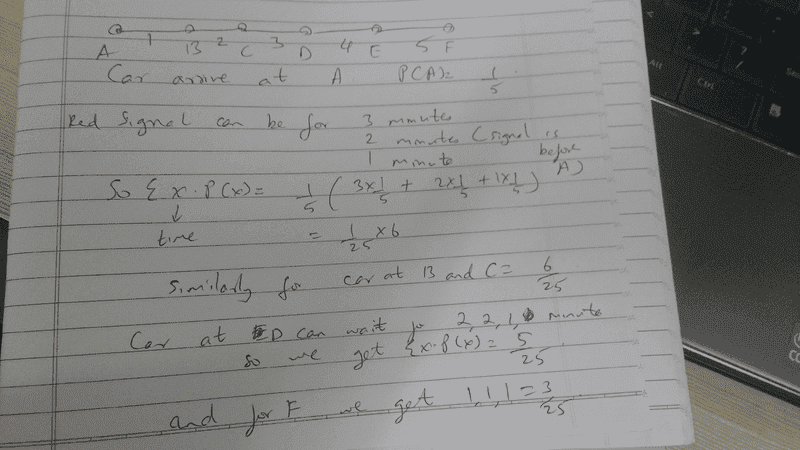 A 1 B 2 C 3 D 4 E 5 F
Car arrive at A P(A) = 1/5
Red Signal can be for 3 minutes
2 minutes (signal is before A)
1 minute
So Σ x·P(x) = 1/5 (3×1/5 + 2×1/5 + 1×1/5)
↓
time = 1/25 × 6
Similarly for car at B and C = 6/25
Car at D can wait for 2, 2, 1, minute
so we get Σx·P(x) = 5/25
and for F we get 1, 1, 1 = 3/25
Alt
Ctrl